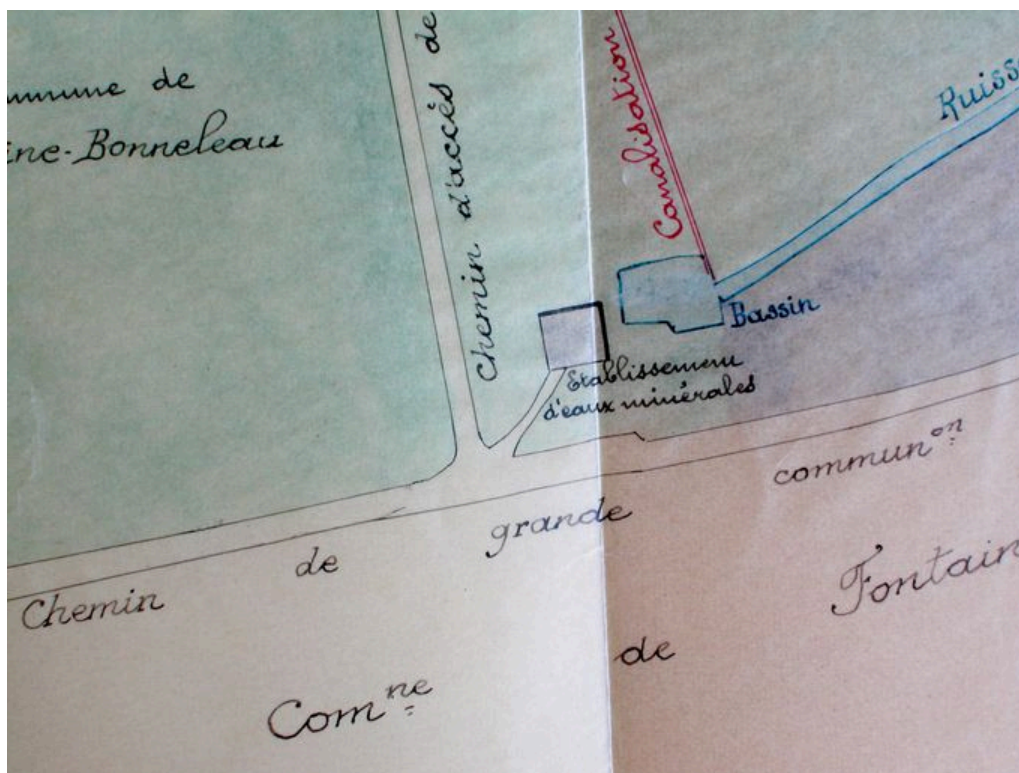 ommune de
ine-Bonneleau
Chemin d'accès de
Canalisation
Ruiss
Bassin
Etablissement
d'eaux minérales
Chemin de grande commun^on
Com^ne de Fontain